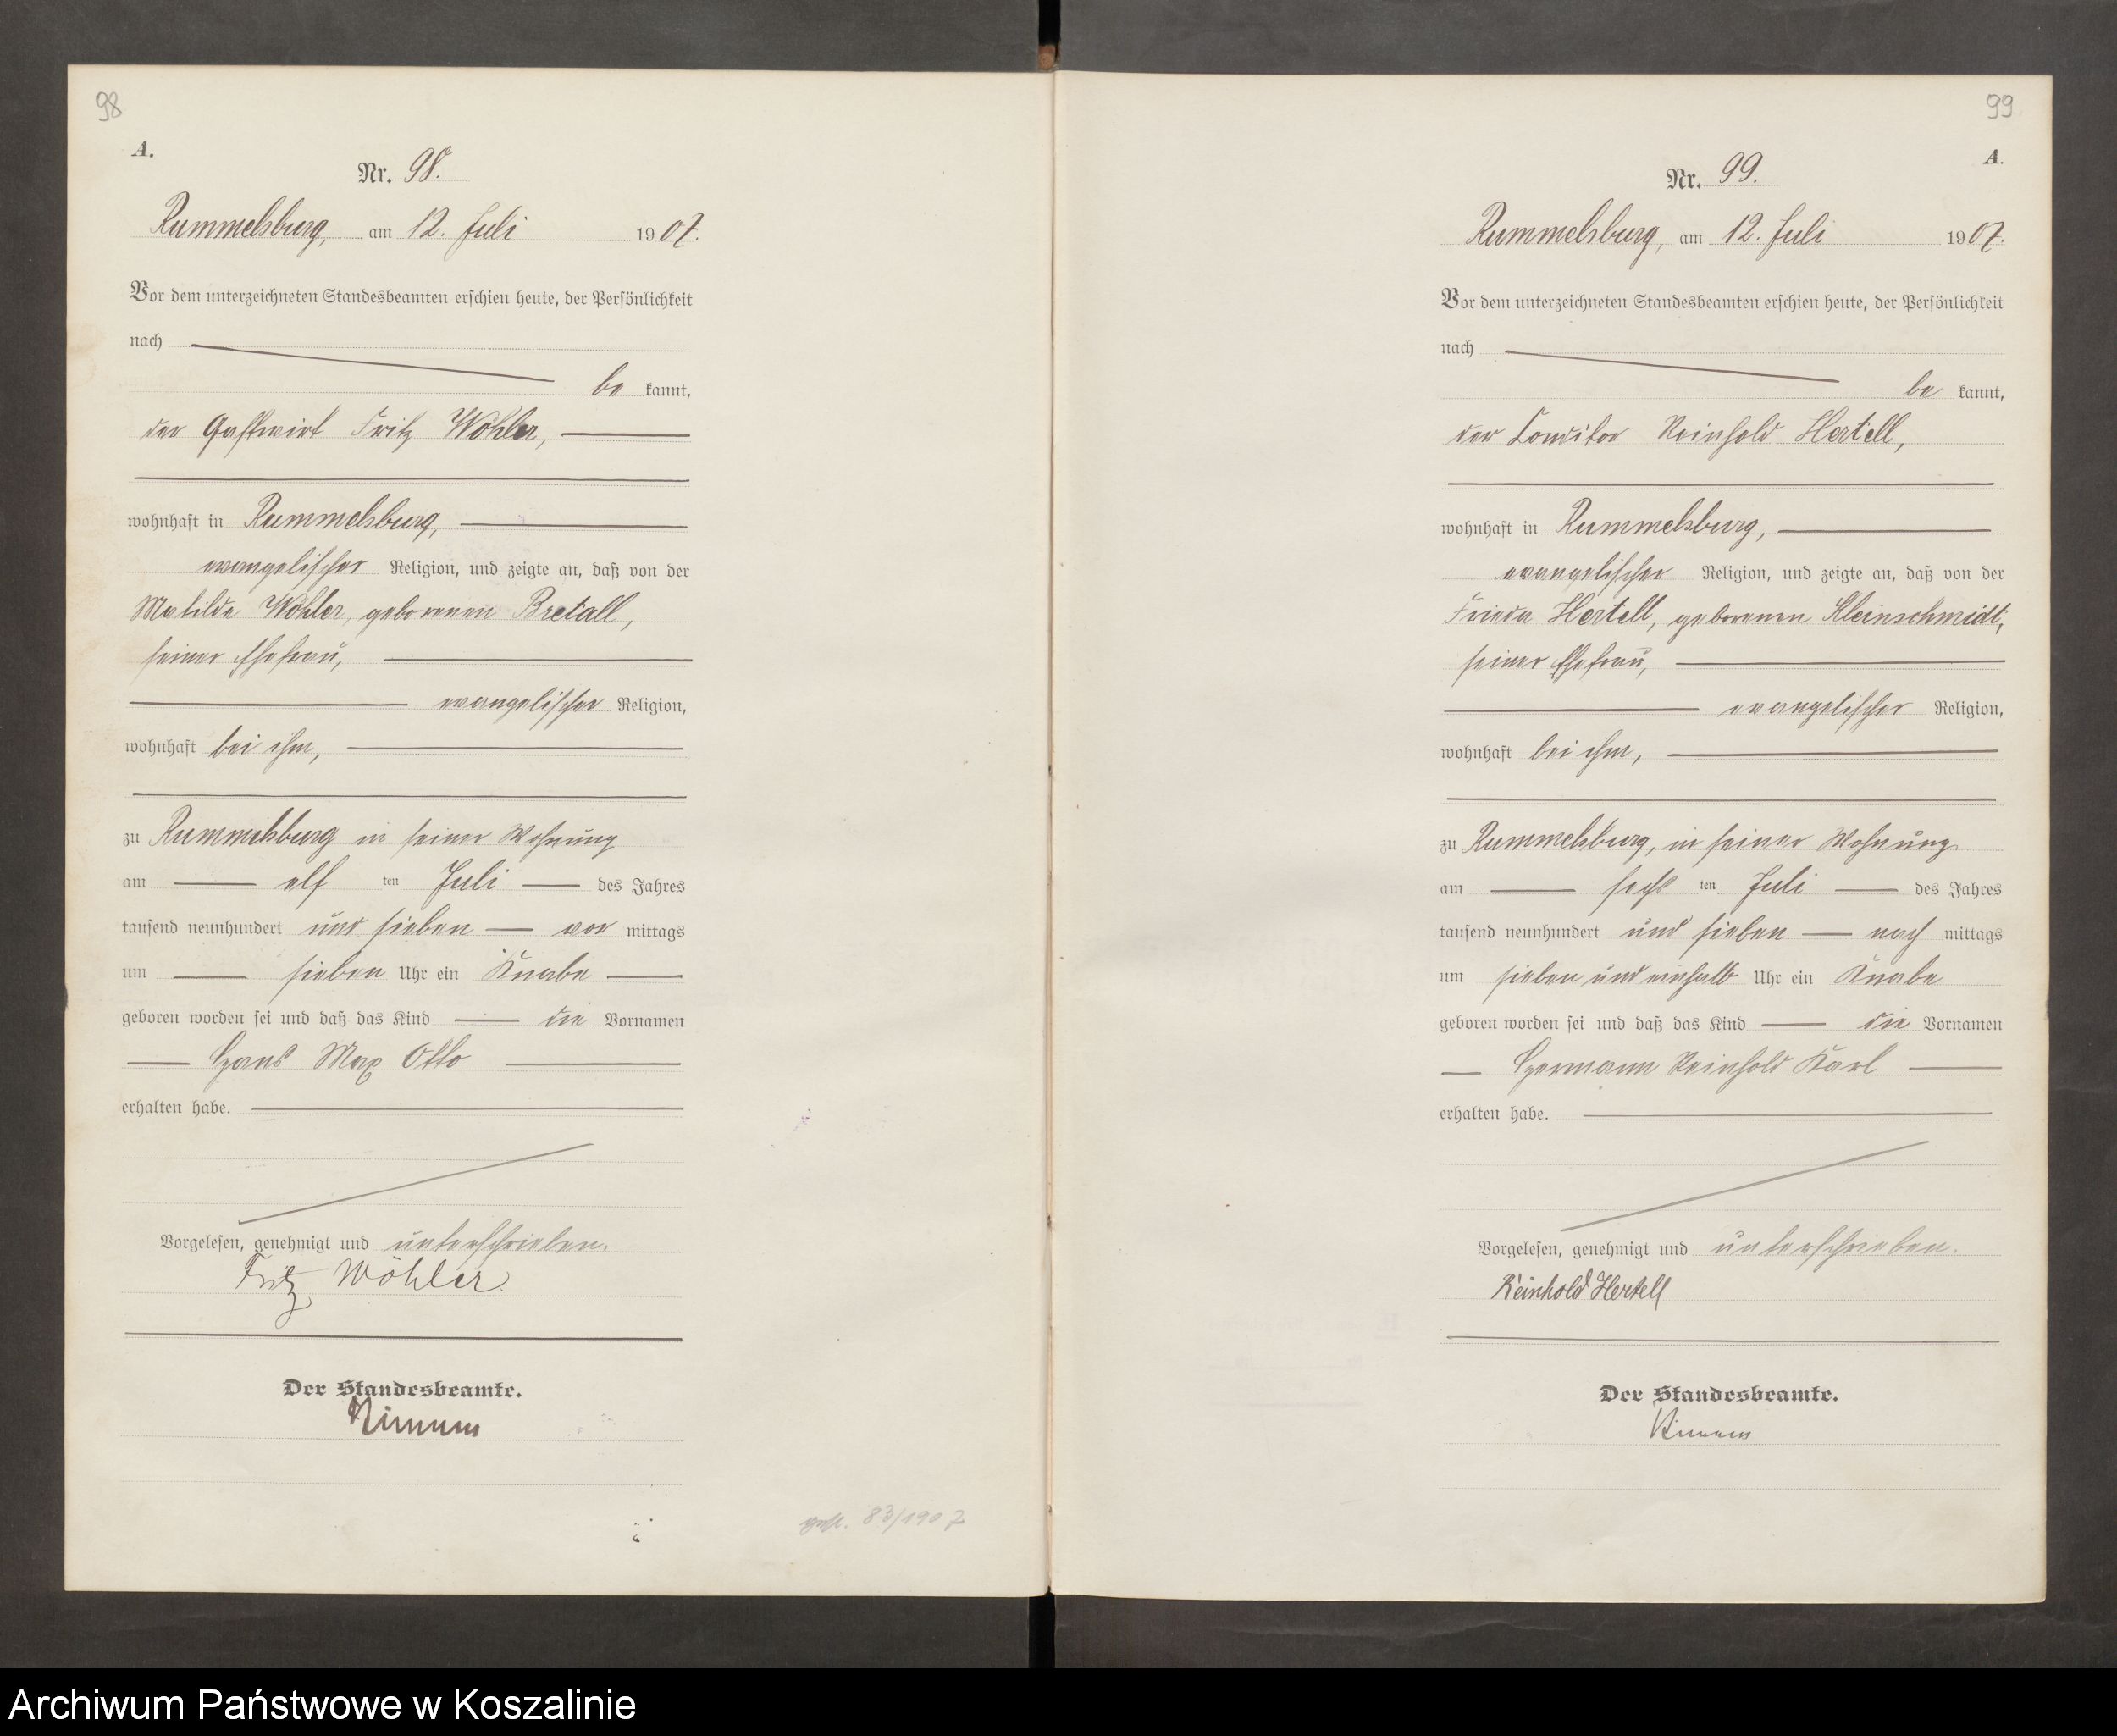 98
A.
Nr. 98.
Rummelsburg, am 12. Juli 1907.
Vor dem unterzeichneten Standesbeamten erschien heute, der Persönlichkeit
nach
be kannt,
der Gastwirt Fritz Wöhler,
wohnhaft in Rummelsburg,
evangelischer Religion, und zeigte an, daß von der
Matilde Wöhler, geborenen Bretall,
seiner Ehefrau,
evangelischer Religion,
wohnhaft bei ihm,
zu Rummelsburg in seiner Wohnung
am elf ten Juli des Jahres
tausend neunhundert und sieben vor mittags
um sieben Uhr ein Knabe
geboren worden sei und daß das Kind die Vornamen
Hans Max Otto
erhalten habe.
Vorgelesen, genehmigt und unterschrieben.
Fritz Wöhler.
Der Standesbeamte.
83/1907
99
A.
Nr. 99.
Rummelsburg, am 12. Juli 1907.
Vor dem unterzeichneten Standesbeamten erschien heute, der Persönlichkeit
nach
be kannt,
der Conditor Reinhold Hertell,
wohnhaft in Rummelsburg,
evangelischer Religion, und zeigte an, daß von der
Frieda Hertell, geborenen Kleinschmidt,
seiner Ehefrau,
evangelischer Religion,
wohnhaft bei ihm,
zu Rummelsburg, in seiner Wohnung
am sechs ten Juli des Jahres
tausend neunhundert und sieben nach mittags
um sieben und einhalb Uhr ein Knabe
geboren worden sei und daß das Kind die Vornamen
Hermann Reinhold Karl
erhalten habe.
Vorgelesen, genehmigt und unterschrieben.
Reinhold Hertell
Der Standesbeamte.
Archiwum Państwowe w Koszalinie